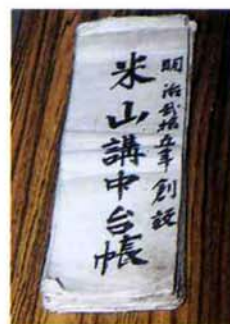 明治弐拾五年創設
米山講中台帳